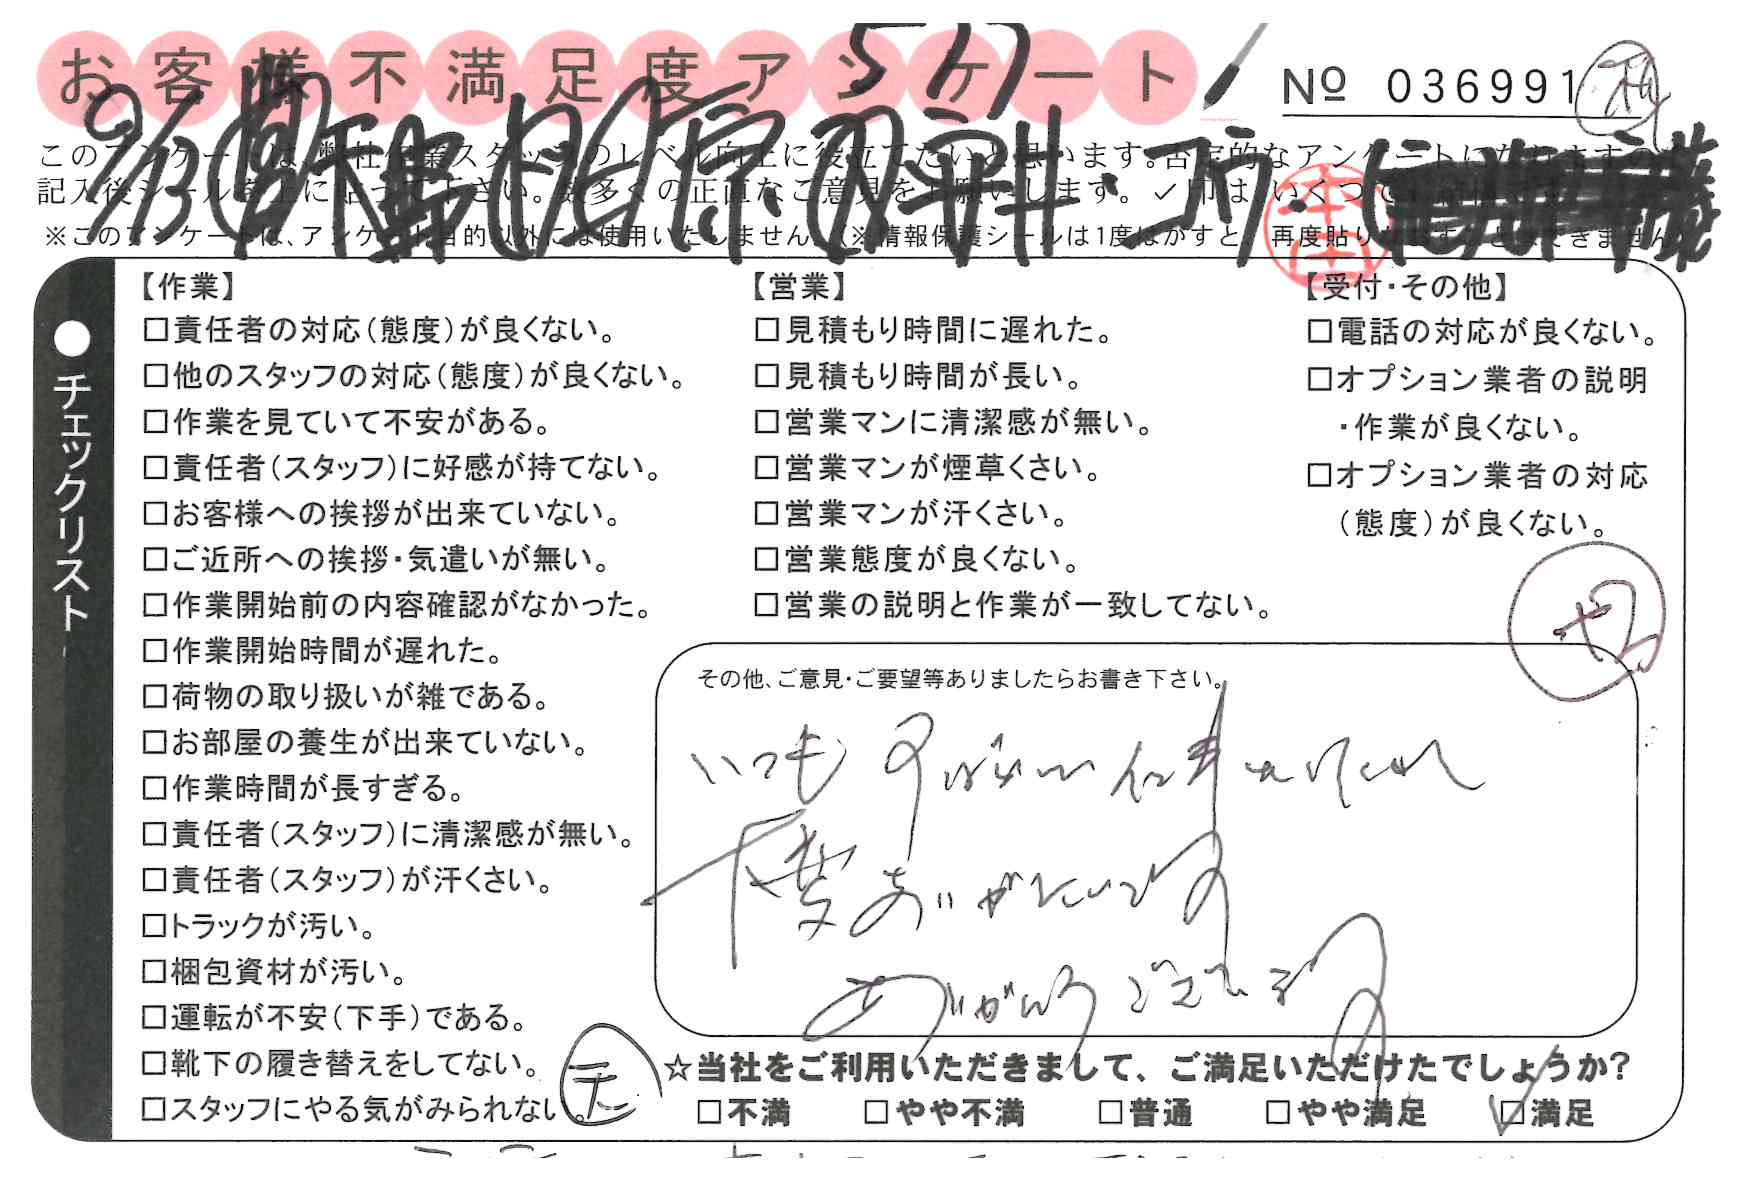 お客様不満足度アンケート
№ 036991
このアンケートは、弊社作業スタッフのレベル向上に役立てたいと思います。否定的なアンケートに
記入後シールを上に貼って下さい。数多くの正直なご意見をお願いします。✓印は、いくつでも
※このアンケートは、アンケート目的以外には使用いたしません。(※情報保護シールは1度はがすと、再度貼りなおすことはできません
9/13
本田
●チェックリスト
【作業】
□責任者の対応(態度)が良くない。
□他のスタッフの対応(態度)が良くない。
□作業を見ていて不安がある。
□責任者(スタッフ)に好感が持てない。
□お客様への挨拶が出来ていない。
□ご近所への挨拶・気遣いが無い。
□作業開始前の内容確認がなかった。
□作業開始時間が遅れた。
□荷物の取り扱いが雑である。
□お部屋の養生が出来ていない。
□作業時間が長すぎる。
□責任者(スタッフ)に清潔感が無い。
□責任者(スタッフ)が汗くさい。
□トラックが汚い。
□梱包資材が汚い。
□運転が不安(下手)である。
□靴下の履き替えをしてない。
□スタッフにやる気がみられない。
【営業】
□見積もり時間に遅れた。
□見積もり時間が長い。
□営業マンに清潔感が無い。
□営業マンが煙草くさい。
□営業マンが汗くさい。
□営業態度が良くない。
□営業の説明と作業が一致してない。
【受付・その他】
□電話の対応が良くない。
□オプション業者の説明
・作業が良くない。
□オプション業者の対応
(態度)が良くない。
その他、ご意見・ご要望等ありましたらお書き下さい。
いつもすばらしい仕事
大変ありがたいです
ありがとうございます
☆当社をご利用いただきまして、ご満足いただけたでしょうか?
□不満 □やや不満 □普通 □やや満足 ☑満足